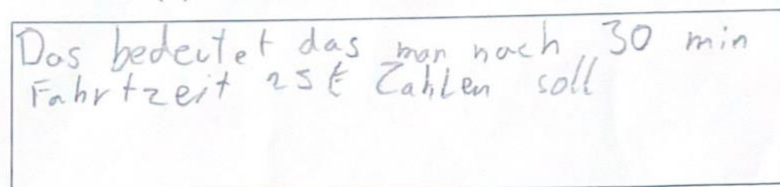 Das bedeutet das man nach 30 min
Fahrtzeit 25€ Zahlen soll